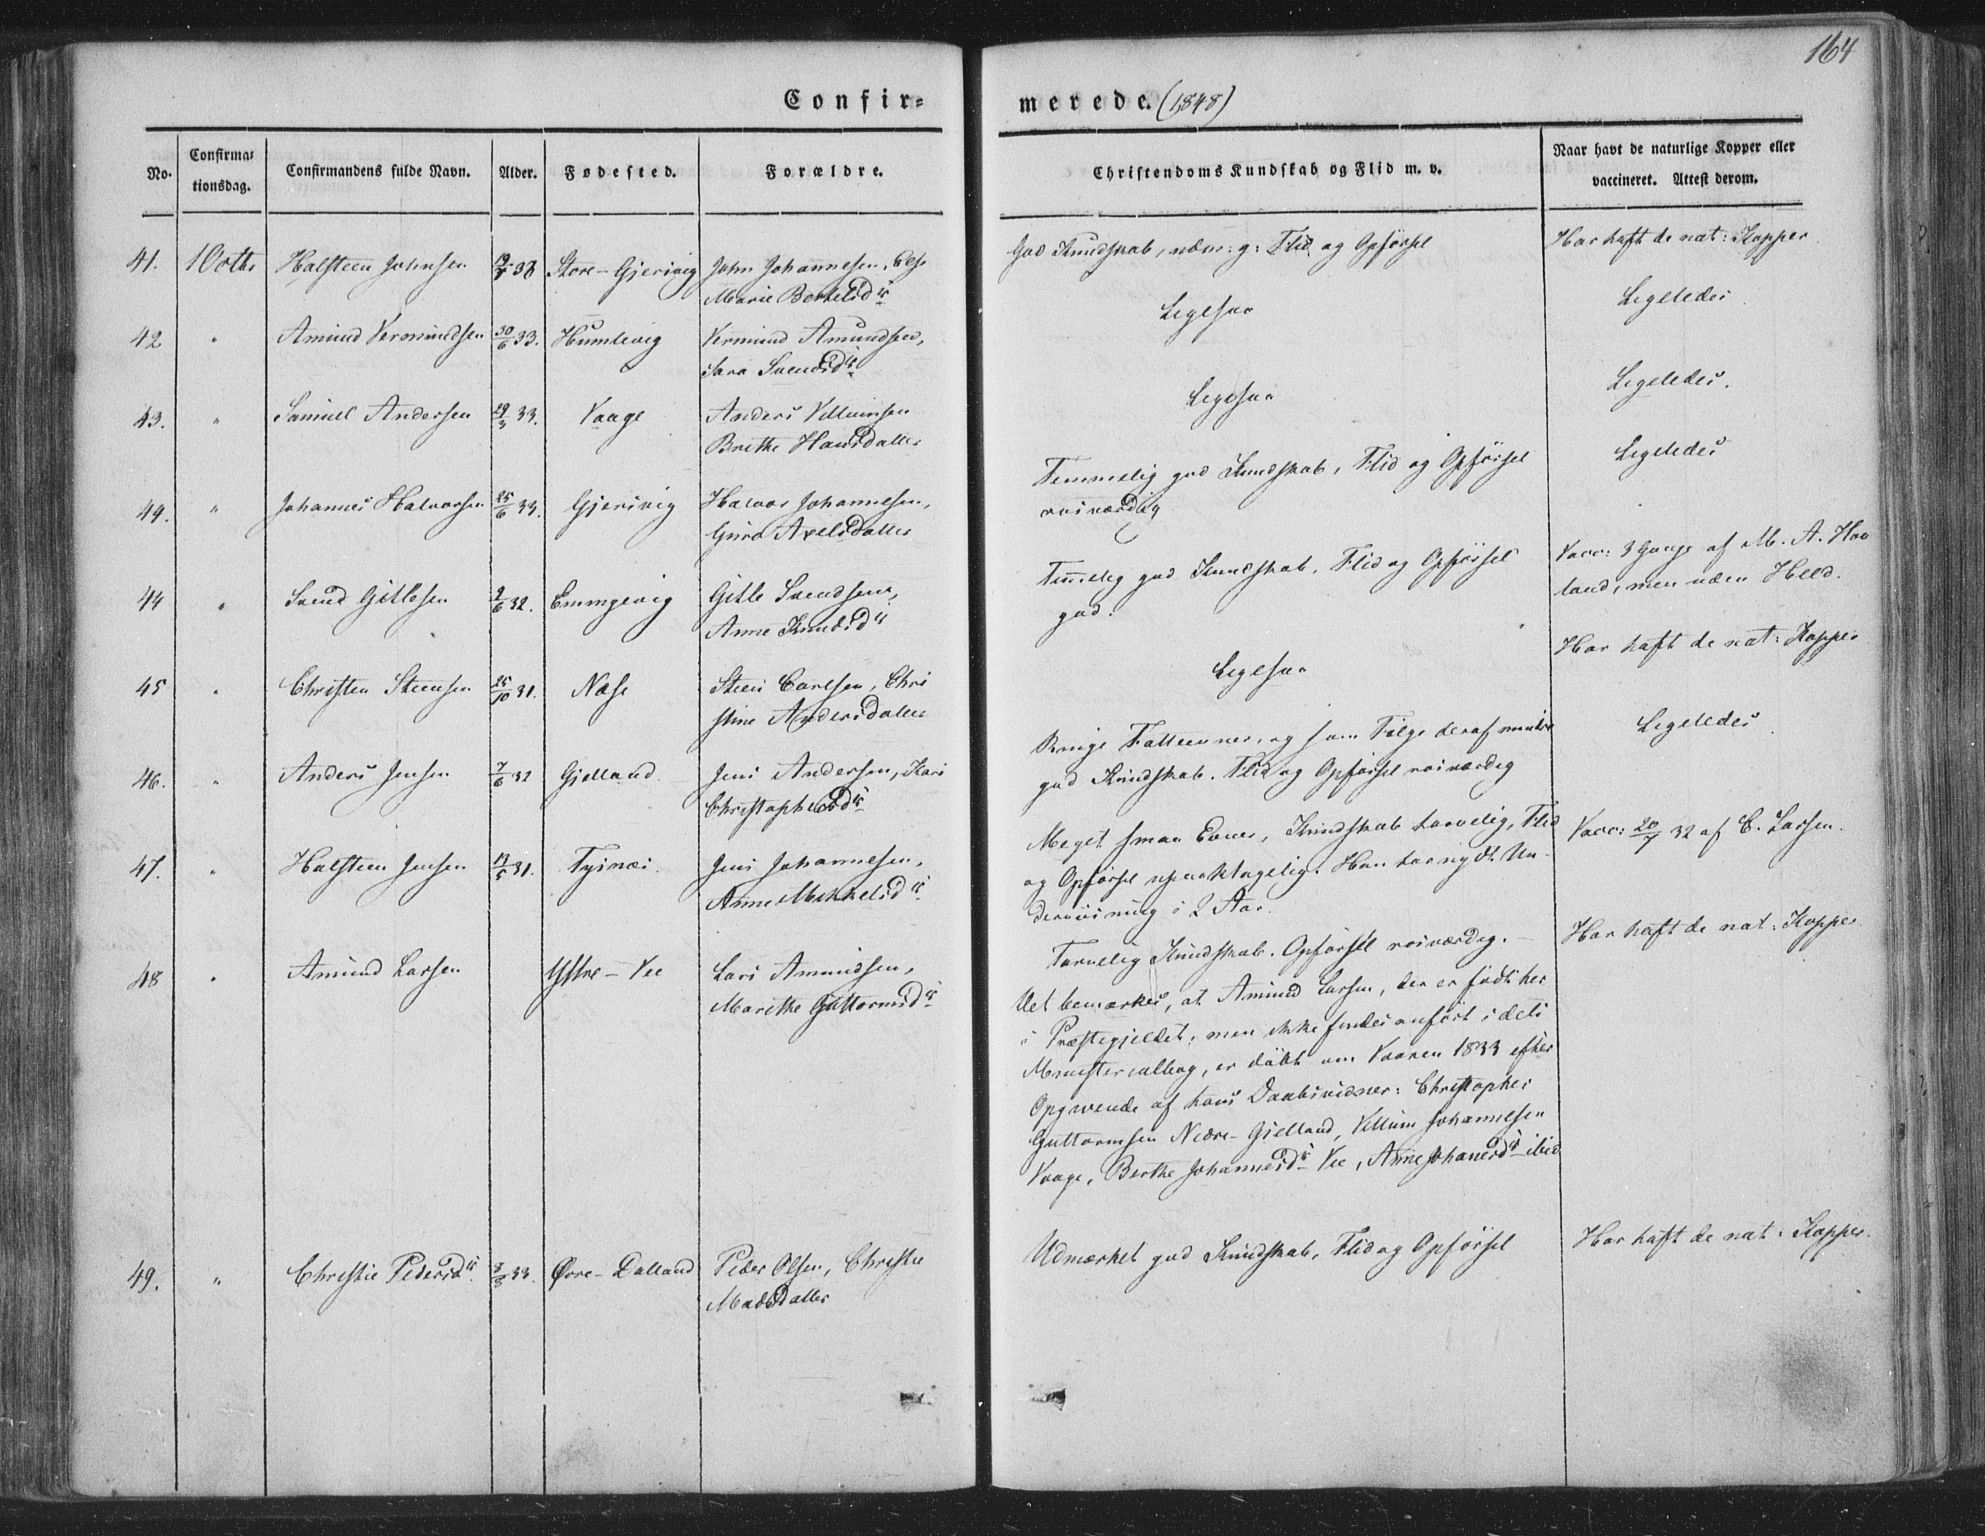 164
Confir=
merede. (1848)
No.
Confirma=
tionsdag.
Confirmandens fulde Navn.
Alder.
Fødested.
Forældre.
Christendoms Kundskab og Flid m. v.
Naar havt de naturlige Kopper eller
vaccineret. Attest derom.
41. 1 Octbr Halsteen Johnsen 33 Store-Gjerivig John Johannesen, Else
Marie Bertelsdr
God Kundskab, næm: g: Flid og Opførsel
Har haft de nat: Kopper
42 " Amund Vermundsen 30/6 33. Humlevig Vermund Amundsen,
Sara Svendsdr
Legesaa
Legeledes
43. " Samuel Andersen 29/3 33. Vaage Anders Villumsen
Brithe Hansdatter
Legesaa
Legeledes.
49. " Johannes Halvorsen 25/6 33. Gjerivig Halvor Johannesen,
Guro Axelsdatter
Temmelig god Kundskab, Flid og Opførsel
roisværdig
Legeledes
44 " Svend Gitlesen 2/6 32. Emmgevig Gitle Svendsen,
Anne Knudsdr
Temelig god Kundskab. Flid og Opførsel
god.
Vacc: 3 Gange af M. A. Hav
land, men uden Held.
45 " Christen Steensen 25/10 31. Næse Steen Carlsen, Chri
stine Andersdatter
Legesaa
Har haft de nat: Kopper
46. " Anders Jensen 7/6 32 Gjelland Jens Andersen, Kari
Christophersdr
Ringe Fatteevner, og som Følge deraf mindre
god Kundskab. Flid og Opførsel roisværdig
Legeledes
47. " Halsteen Jensen 13/5 31. Tysnæs. Jens Johannesen,
Anne Mikkelsdr
Meget smaa Evner, Kundskab tarvelig, Flid
og Opførsel upaaklagelig. Han har nydt Un-
derviisning i 2 Aar.
Vacc: 20/7 32 af C. Larsen.
48 " Amund Larsen Ystre-Vee Lars Amundsen,
Marithe Guttormsdr
Tarvelig Kundskab. Opførsel roisværdig.-
Det bemærkes, at Amund Larsen, der er født her
i Præstegjeldet, men ikke findes anført i dets
Ministerialbog, er døbt om Vaaren 1833 efter
Opgivende af hans Daabsvidner: Christopher
Guttormsen Nedre-Gjelland, Villum Johannesen
Vaage, Berthe Johannesdr Vee, Anne Johanesdr ibid
Har haft de nat: Kopper
49. " Christie Pedersdr 33. Øvre-Dalland Peder Olsen, Christie
Madsdatter
Udmærket god Kundskab, Flid og Opførsel
Har haft de nat: Kopper.